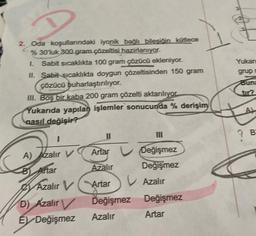 2. Oda koşullarındaki iyonik bağlı bileşiğin kütlece
% 30'luk 300 gram çözeltisi hazırlanıyor.
I. Sabit sıcaklıkta 100 gram çözücü ekleniyor.
II. Sabit sıcaklıkta doygun çözeltisinden 150 gram
çözücü buharlaştırılıyor.
III. Boş bir kaba 200 gram çözelti aktarılıyor.
Yukarıda yapılan işlemler sonucunda % derişim
nasıl değişir?
I II III
A) Azalır Artar Değişmez
B) Artar Azalır Değişmez
C) Azalır Artar Azalır
D) Azalır Değişmez Değişmez
E) Değişmez Azalır Artar
Yukarı
grup
Buna
tır?
A)
? B